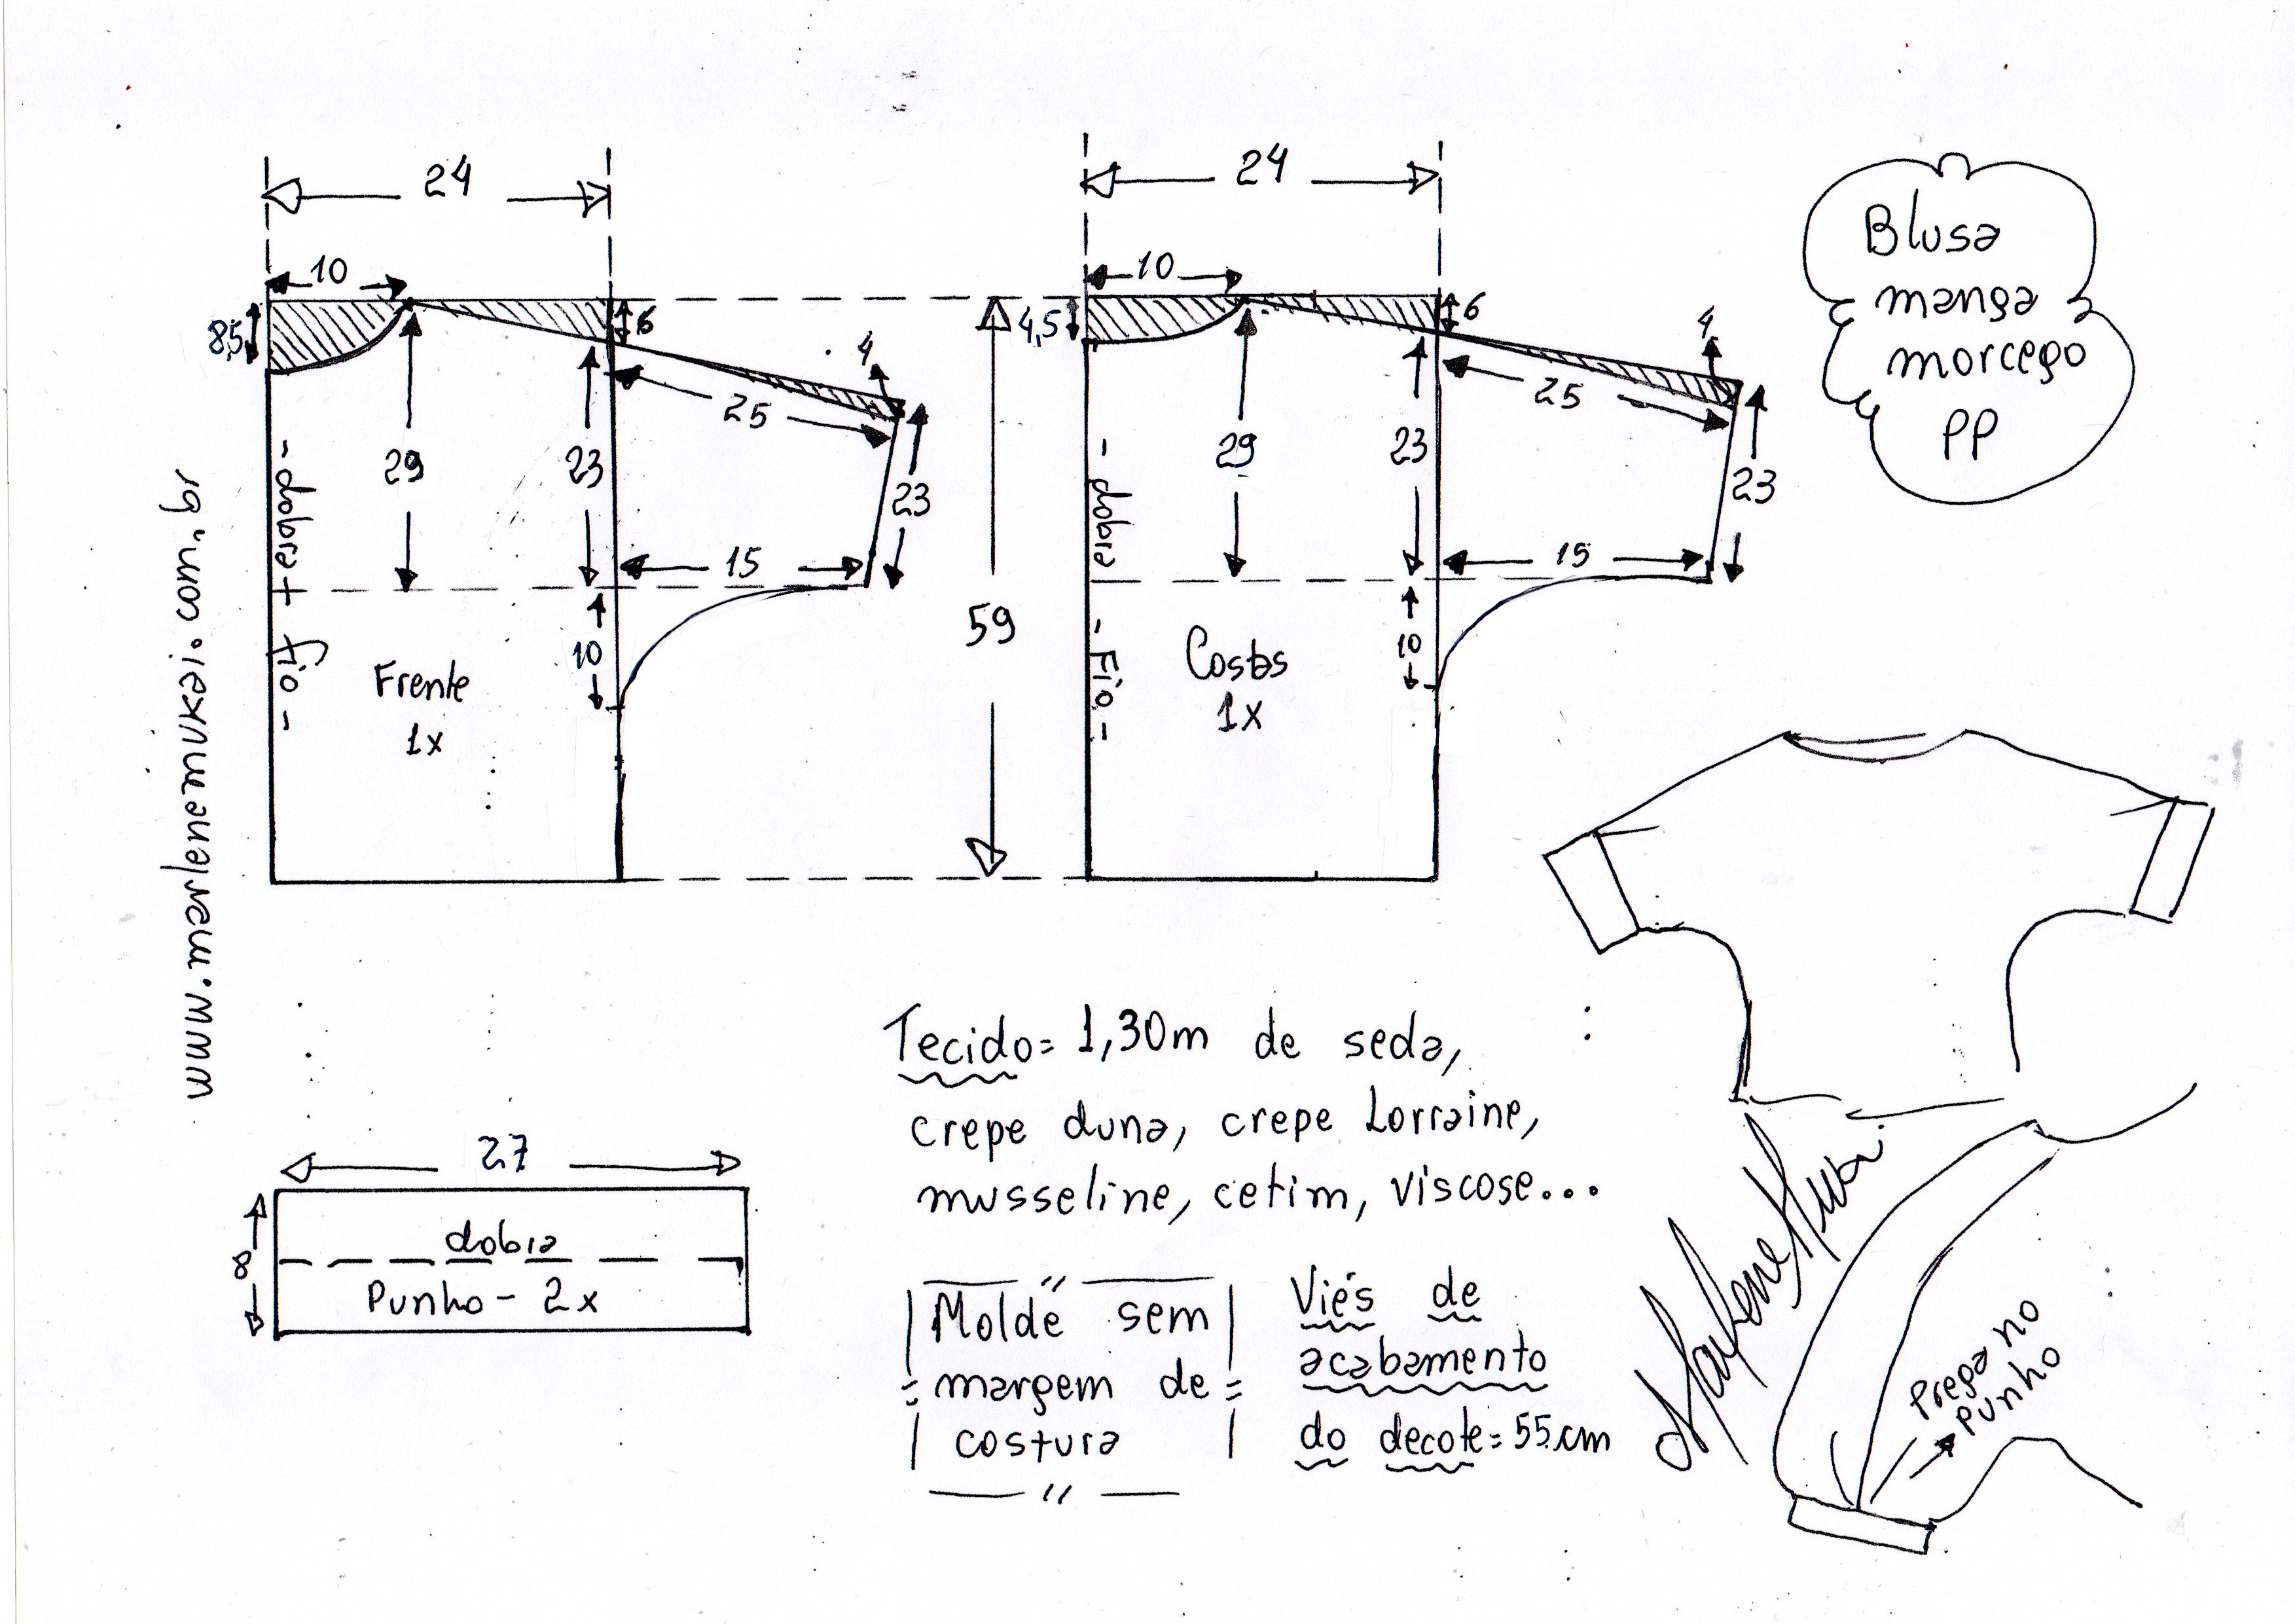 24
10
8,5
6
4
29
23
25
23
15
10
- dobra + fio -
Frente
1x
59
24
10
4,5
6
4
29
23
25
23
15
10
- dobra - Fio -
Costas
1x
Blusa
manga
morcego
PP
www.marlenemukai.com.br
27
8
dobra
Punho - 2x
Tecido = 1,30m de seda,
crepe duna, crepe Lorraine,
musseline, cetim, viscose...
Molde sem
margem de
costura
Viés de
acabamento
do decote = 55cm
Marlene Mukai
Prega no
punho